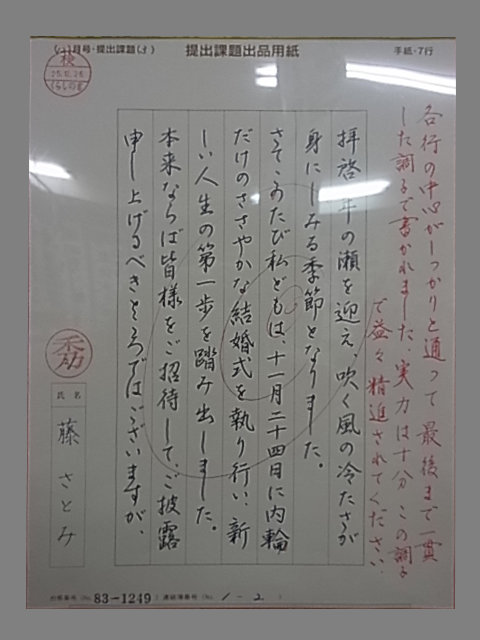 月号・提出課題
提出課題出品用紙
手紙・7行
検
25.12.26
くらしの書
各行の中心がしっかりと通って最後まで一貫
した調子で書かれました。実力は十分 この調子
で益々精進されてください
拝啓 年の瀬を迎え、吹く風の冷たさが
身にしみる季節となりました。
さて、このたび私どもは、十一月二十四日に内輪
だけのささやかな結婚式を執り行い、新
しい人生の第一歩を踏み出しました。
本来ならば皆様をご招待して、ご披露
申し上げるべきところではございますが、
氏名
藤 さとみ
(No. 83-1249) (No. 1-2)